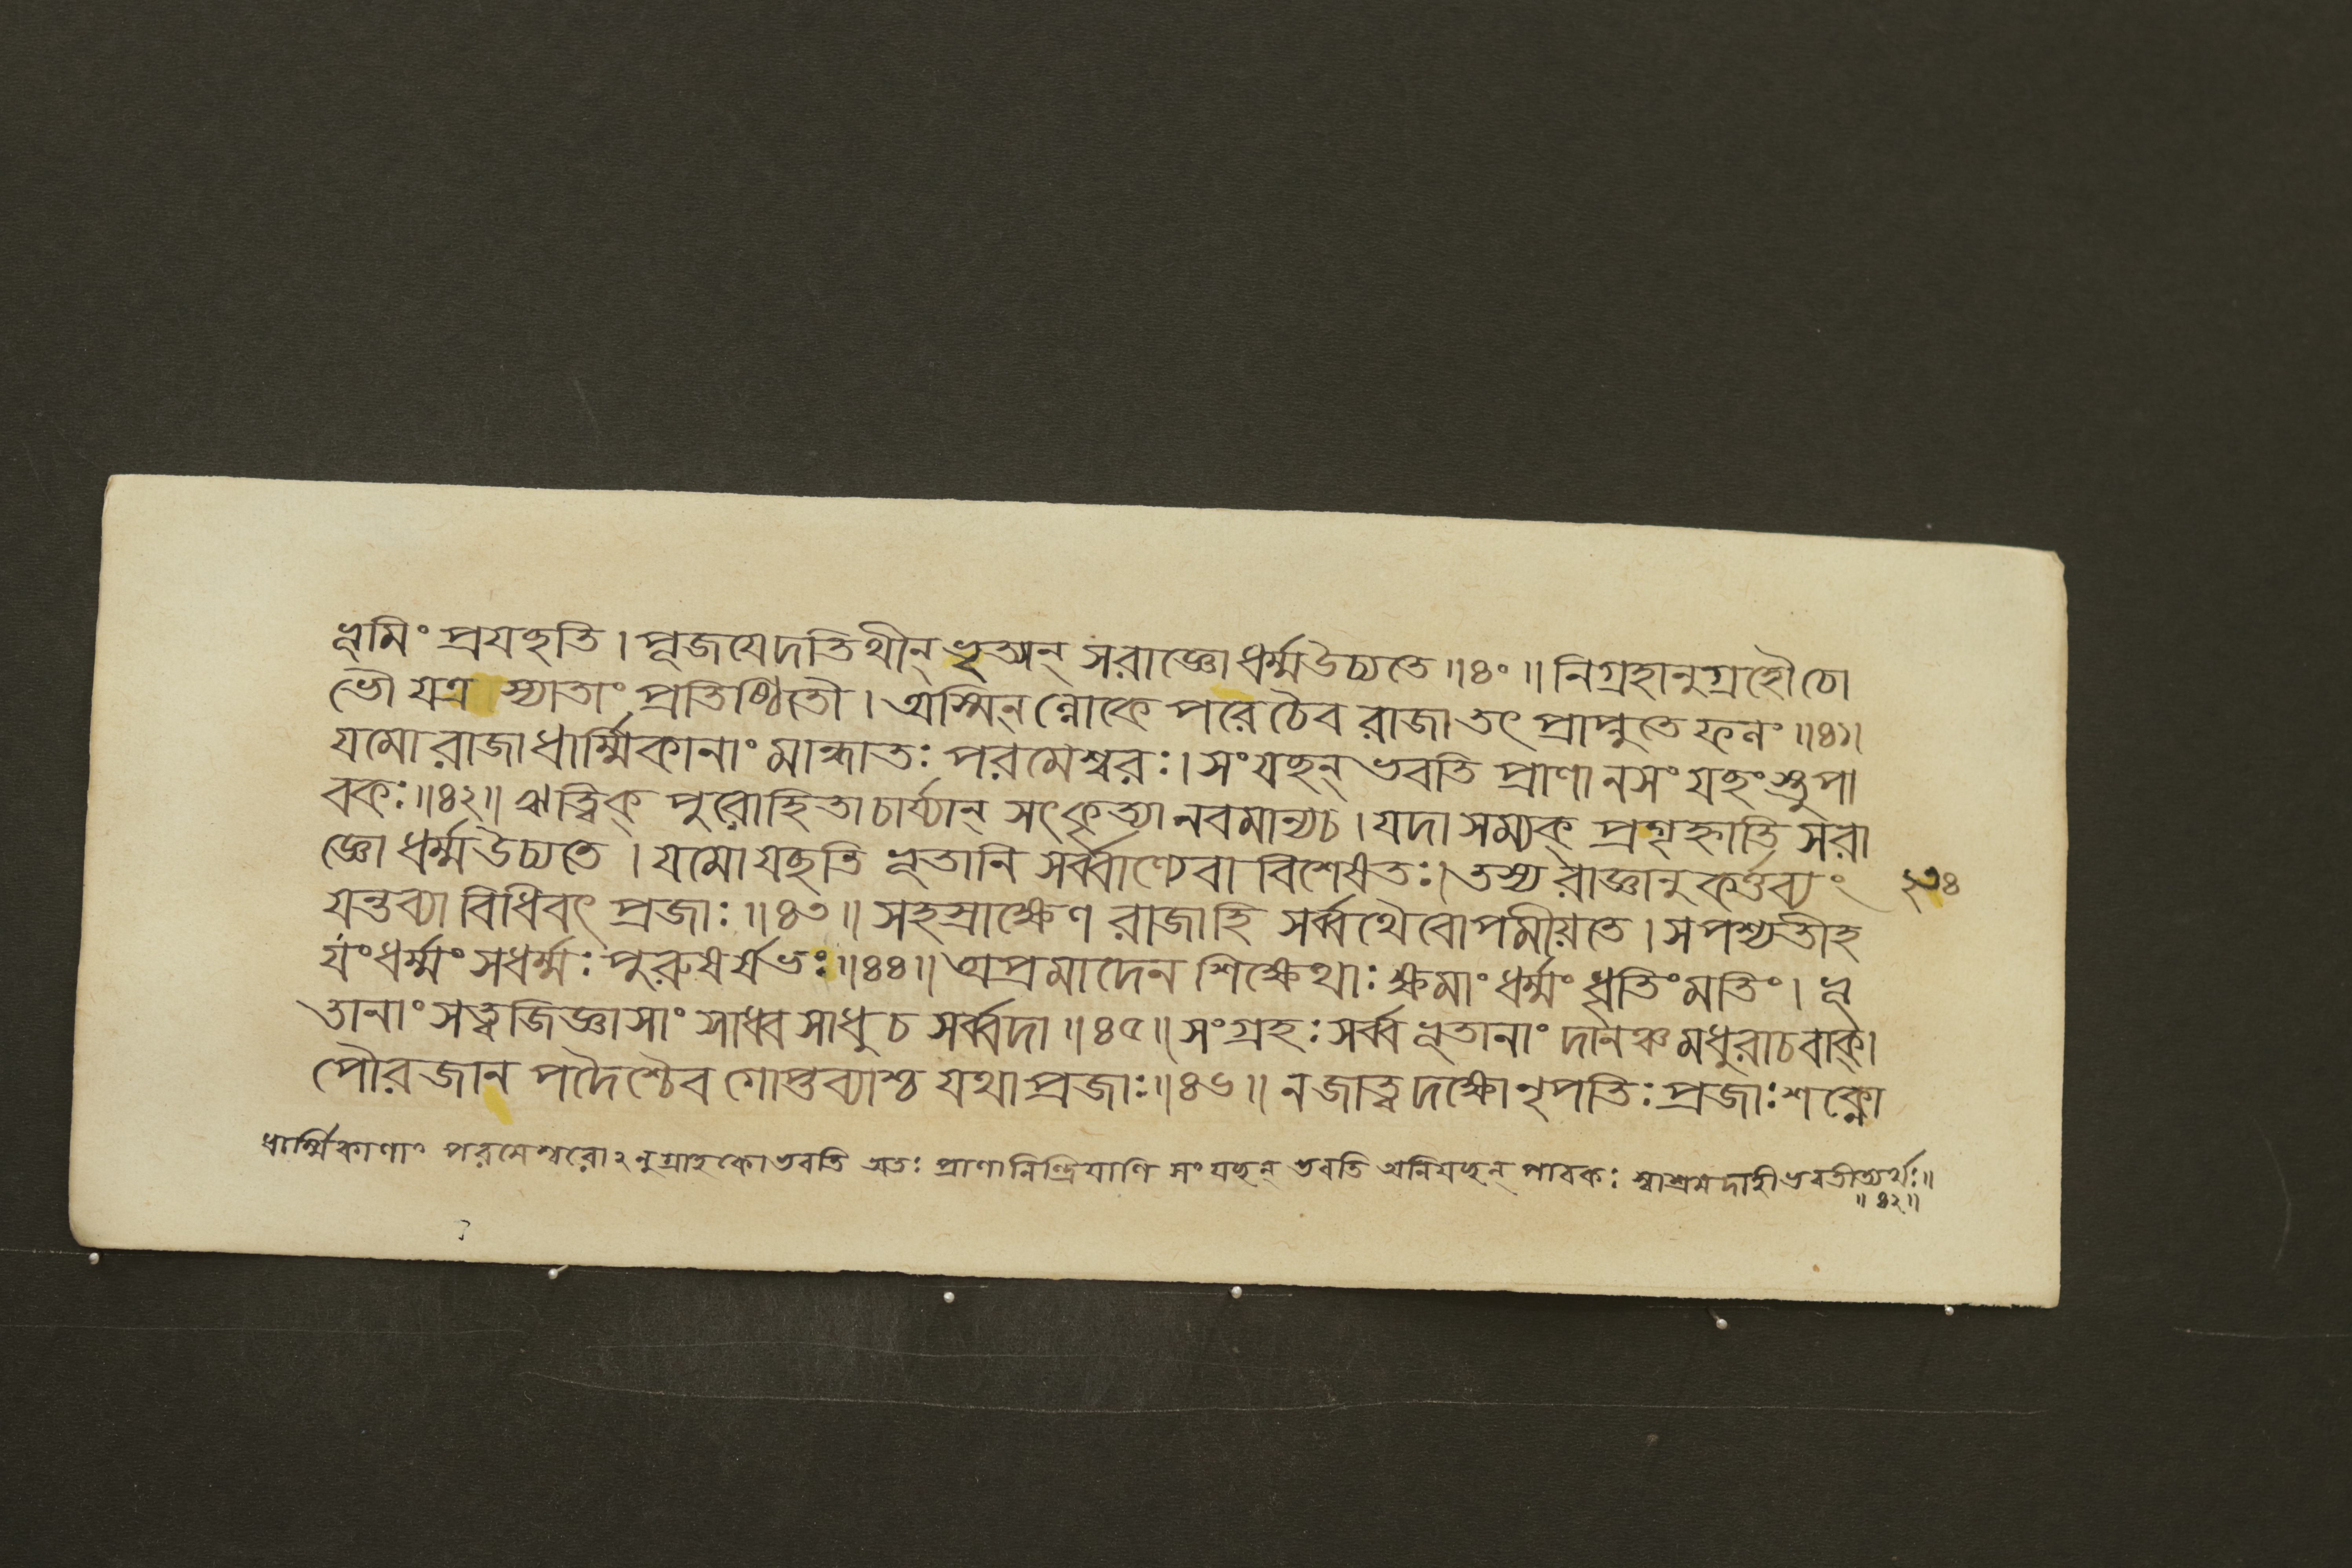 ভূমিং প্রযচ্ছতি । পূজযেদতিথীন্ ভৃত্যান্ সরাজ্ঞোধর্ম্মউচ্যতে ॥৪০॥ নিগ্রহানুগ্রহৌচো
ভৌ যত্র স্যাতাং প্রতিষ্ঠিতৌ । অস্মিন্ ল্লোকে পরেচৈব রাজা তৎ প্রাপ্নুতে ফলং ॥৪১॥
যমো রাজা ধার্ম্মিকানাং মান্ধাতঃ পরমেশ্বরঃ । সংযচ্ছন্ ভবতি প্রাণানসংযচ্ছংস্তু পা
বকঃ ॥৪২॥ ঋত্বিক্ পুরোহিতাচার্য্যান্ সৎকৃত্যানবমান্যচ । যদা সম্যক্ প্রগৃহ্নাতি সরা
জ্ঞো ধর্ম্মউচ্যতে । যমো যচ্ছতি ভূতানি সর্ব্বাণ্যেবাবিশেষতঃ । তস্য রাজ্ঞানুকর্ত্তব্যং
২৩৪
যন্তব্যা বিধিবৎ প্রজাঃ ॥৪৩॥ সহস্রাক্ষেণ রাজাহি সর্ব্বথৈবোপমীয়তে । সপশ্যতীহ
যংধর্ম্মং সধর্ম্মঃ পুরুষর্ষভঃ ॥৪৪॥ অপ্রমাদেন শিক্ষেথাঃ ক্ষমাং ধর্ম্মং ধৃতিং মতিং । ভূ
তানাং সত্ত্বজিজ্ঞাসাং সাধ্বসাধু চ সর্ব্বদা ॥৪৫॥ সংগ্রহঃ সর্ব্বভূতানাং দানঞ্চ মধুরাচবাক্।
পৌরজানপদৈশ্চৈব গোপ্তব্যাশ্চ যথা প্রজাঃ ॥৪৬॥ ন জাত্বদক্ষোনৃপতিঃ প্রজাঃ শক্নো
ধার্ম্মিকাণাং পরমেশ্বরোঽনুগ্রাহকোভবতি অতঃ প্রাণানিন্দ্রিযাণি সংযচ্ছন্ ভবতি অনিযচ্ছন্ পাবকঃ স্বাশ্রয়দাহীভবতীত্যর্থঃ ॥
॥৪২॥